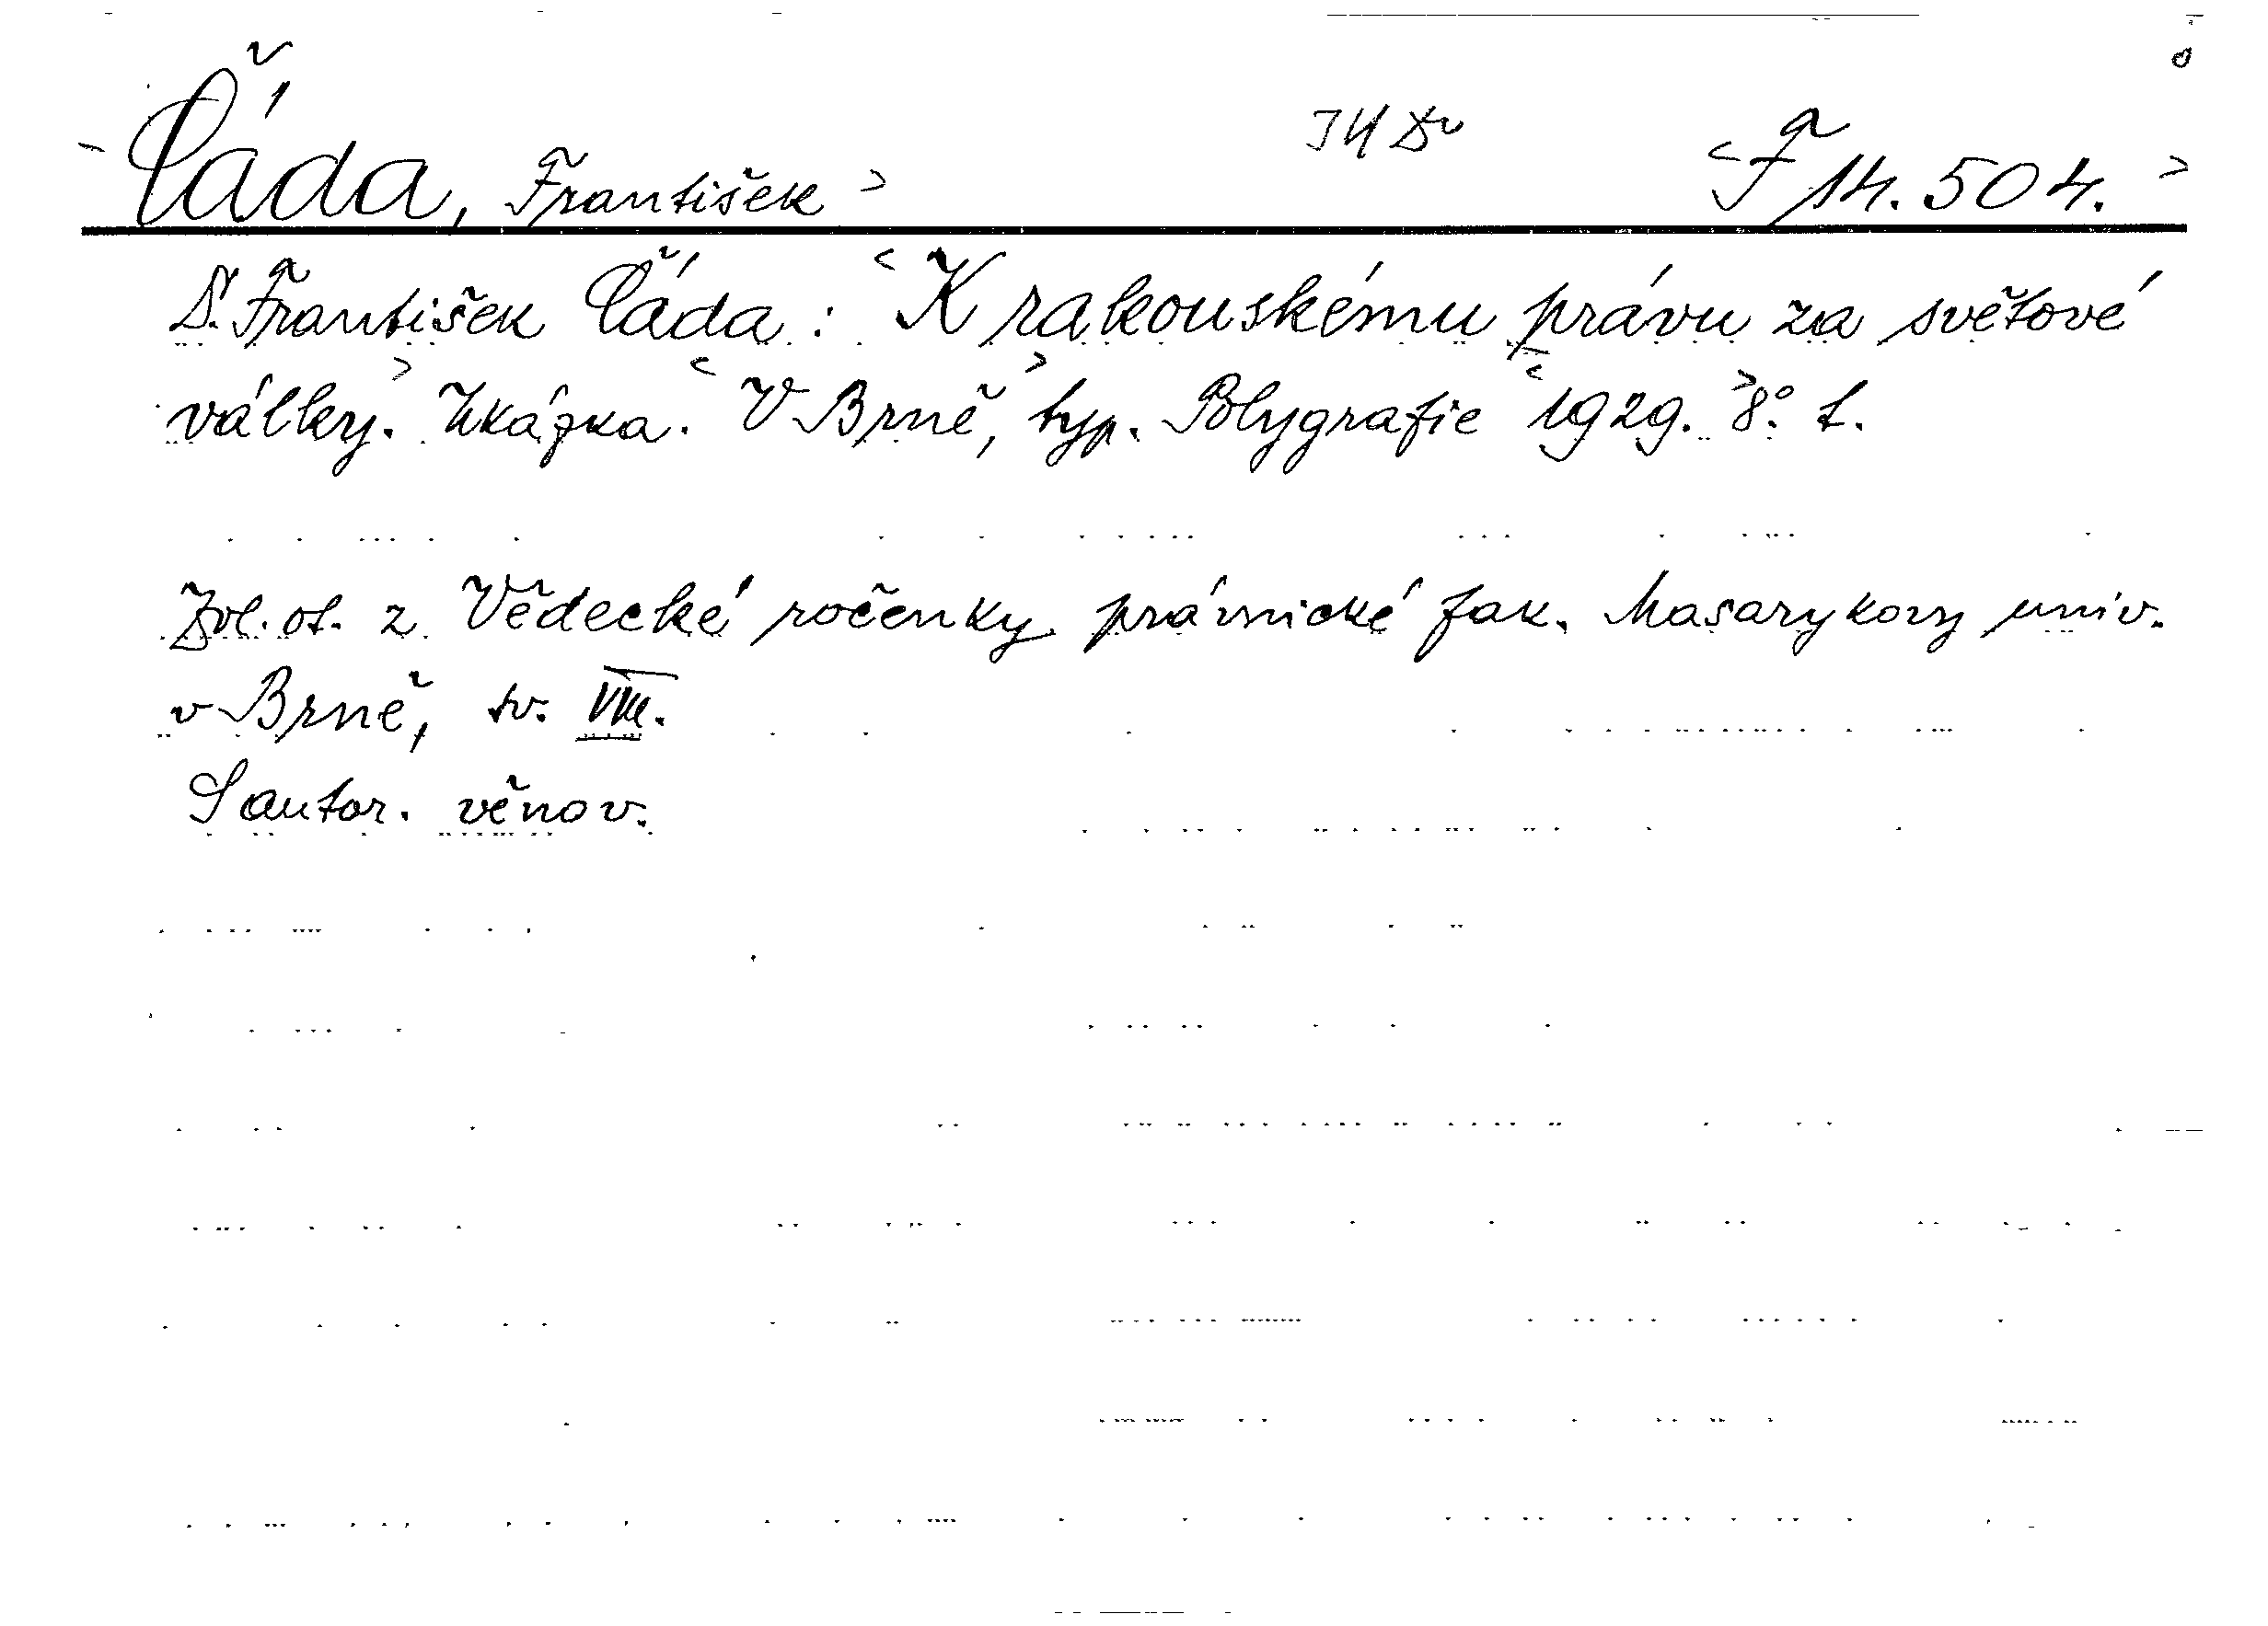 Čáda, František F 14.504.
Dr. František Čáda: K rakouskému právu za světové
války. Ukázka. V Brně, typ. Polygrafie 1929. 8°. t.
Zvl. ot. z Vědecké ročenky právnické fak. Masarykovy univ.
v Brně, sv. VIII.
S autor. věnov.